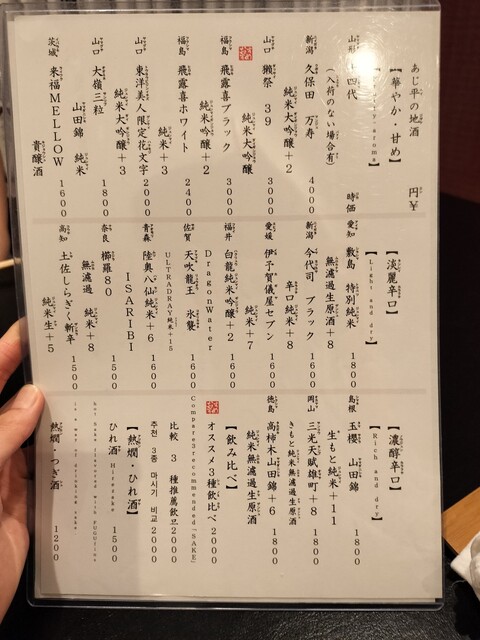 あじ平の地酒　円¥
【華やか・甘め】
山形 十四代 時価
（入荷のない場合有）
新潟 久保田 万寿
純米大吟醸+2 4000
山口 獺祭 39
純米大吟醸 3000
福島 飛露喜ブラック
純米吟醸+2 3000
福島 飛露喜ホワイト
純米+3 2400
山口 東洋美人限定花文字
純米大吟醸+3 2000
山口 大嶺三粒
山田錦 純米 1800
茨城 来福MELLOW
貴醸酒 1600
【淡麗辛口】
【Light and dry】
愛知 敷島 特別純米
無濾過生原酒+8 1800
新潟 今代司 ブラック
辛口純米+8 1600
愛媛 伊予賀儀屋セブン
純米+7 1600
福井 白龍純米吟醸+2
DragonWater 1600
佐賀 天吹龍王 氷襲
ULTRADRAY純米+15 1600
青森 陸奥八仙純米+6
ISARIBI 1600
奈良 櫛羅80
無濾過 純米+8 1500
高知 土佐しらぎく斬辛
純米生+5 1500
【濃醇辛口】
【Rich and dry】
島根 玉櫻 山田錦
生もと純米+11 1800
岡山 三光天賦雄町+8
きもと純米無濾過生原酒 1800
徳島 高柿木山田錦+6
純米無濾過生原酒 1800
【飲み比べ】
オススメ3種飲比べ 2000
Compare3recommended(SAKE)
比較 3 種推薦飲품 2000
추천 3종 마시기 비교 2000
【熱燗・ひれ酒】
ひれ酒 Hiresake 1500
hot Sake flavored with FUGUfins
熱燗・つぎ酒 1200
is a way of drinking sake